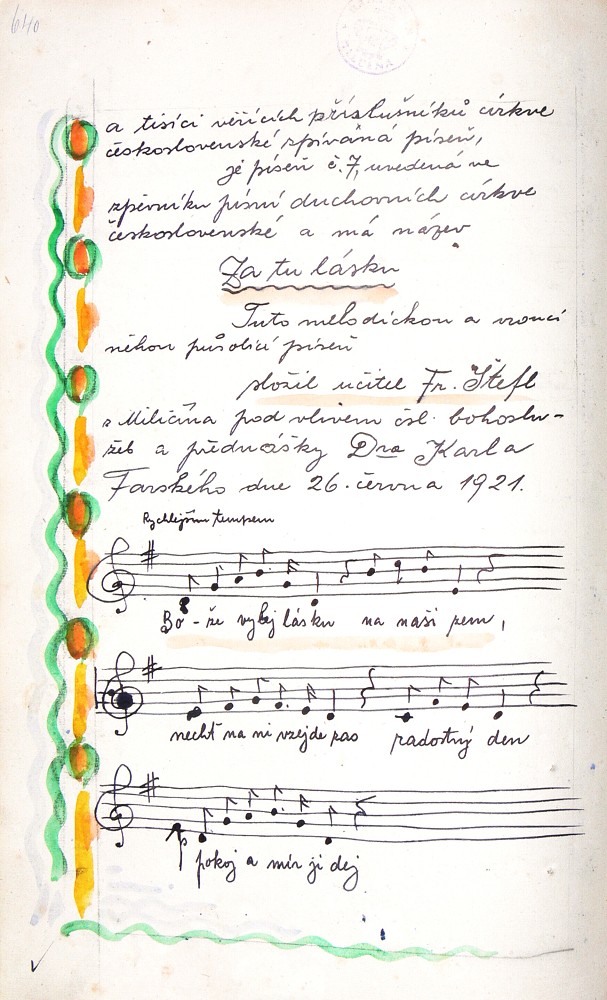 640
a tisíci věřících příslušníků církve
československé zpívaná píseň,
je píseň č. 7, uvedená ve
zpěvníku písní duchovních církve
československé a má název
Za tu lásku
Tuto melodickou a vroucí
něhou působící píseň
složil učitel Fr. Štefl
z Miličína pod vlivem čsl. bohoslu-
žeb a přednášky Dra Karla
Farského dne 26. června 1921.
Rychlejším tempem
Bo - že vylej lásku na naši zem,
nechť na ni vzejde zas radostný den
pokoj a mír ji dej